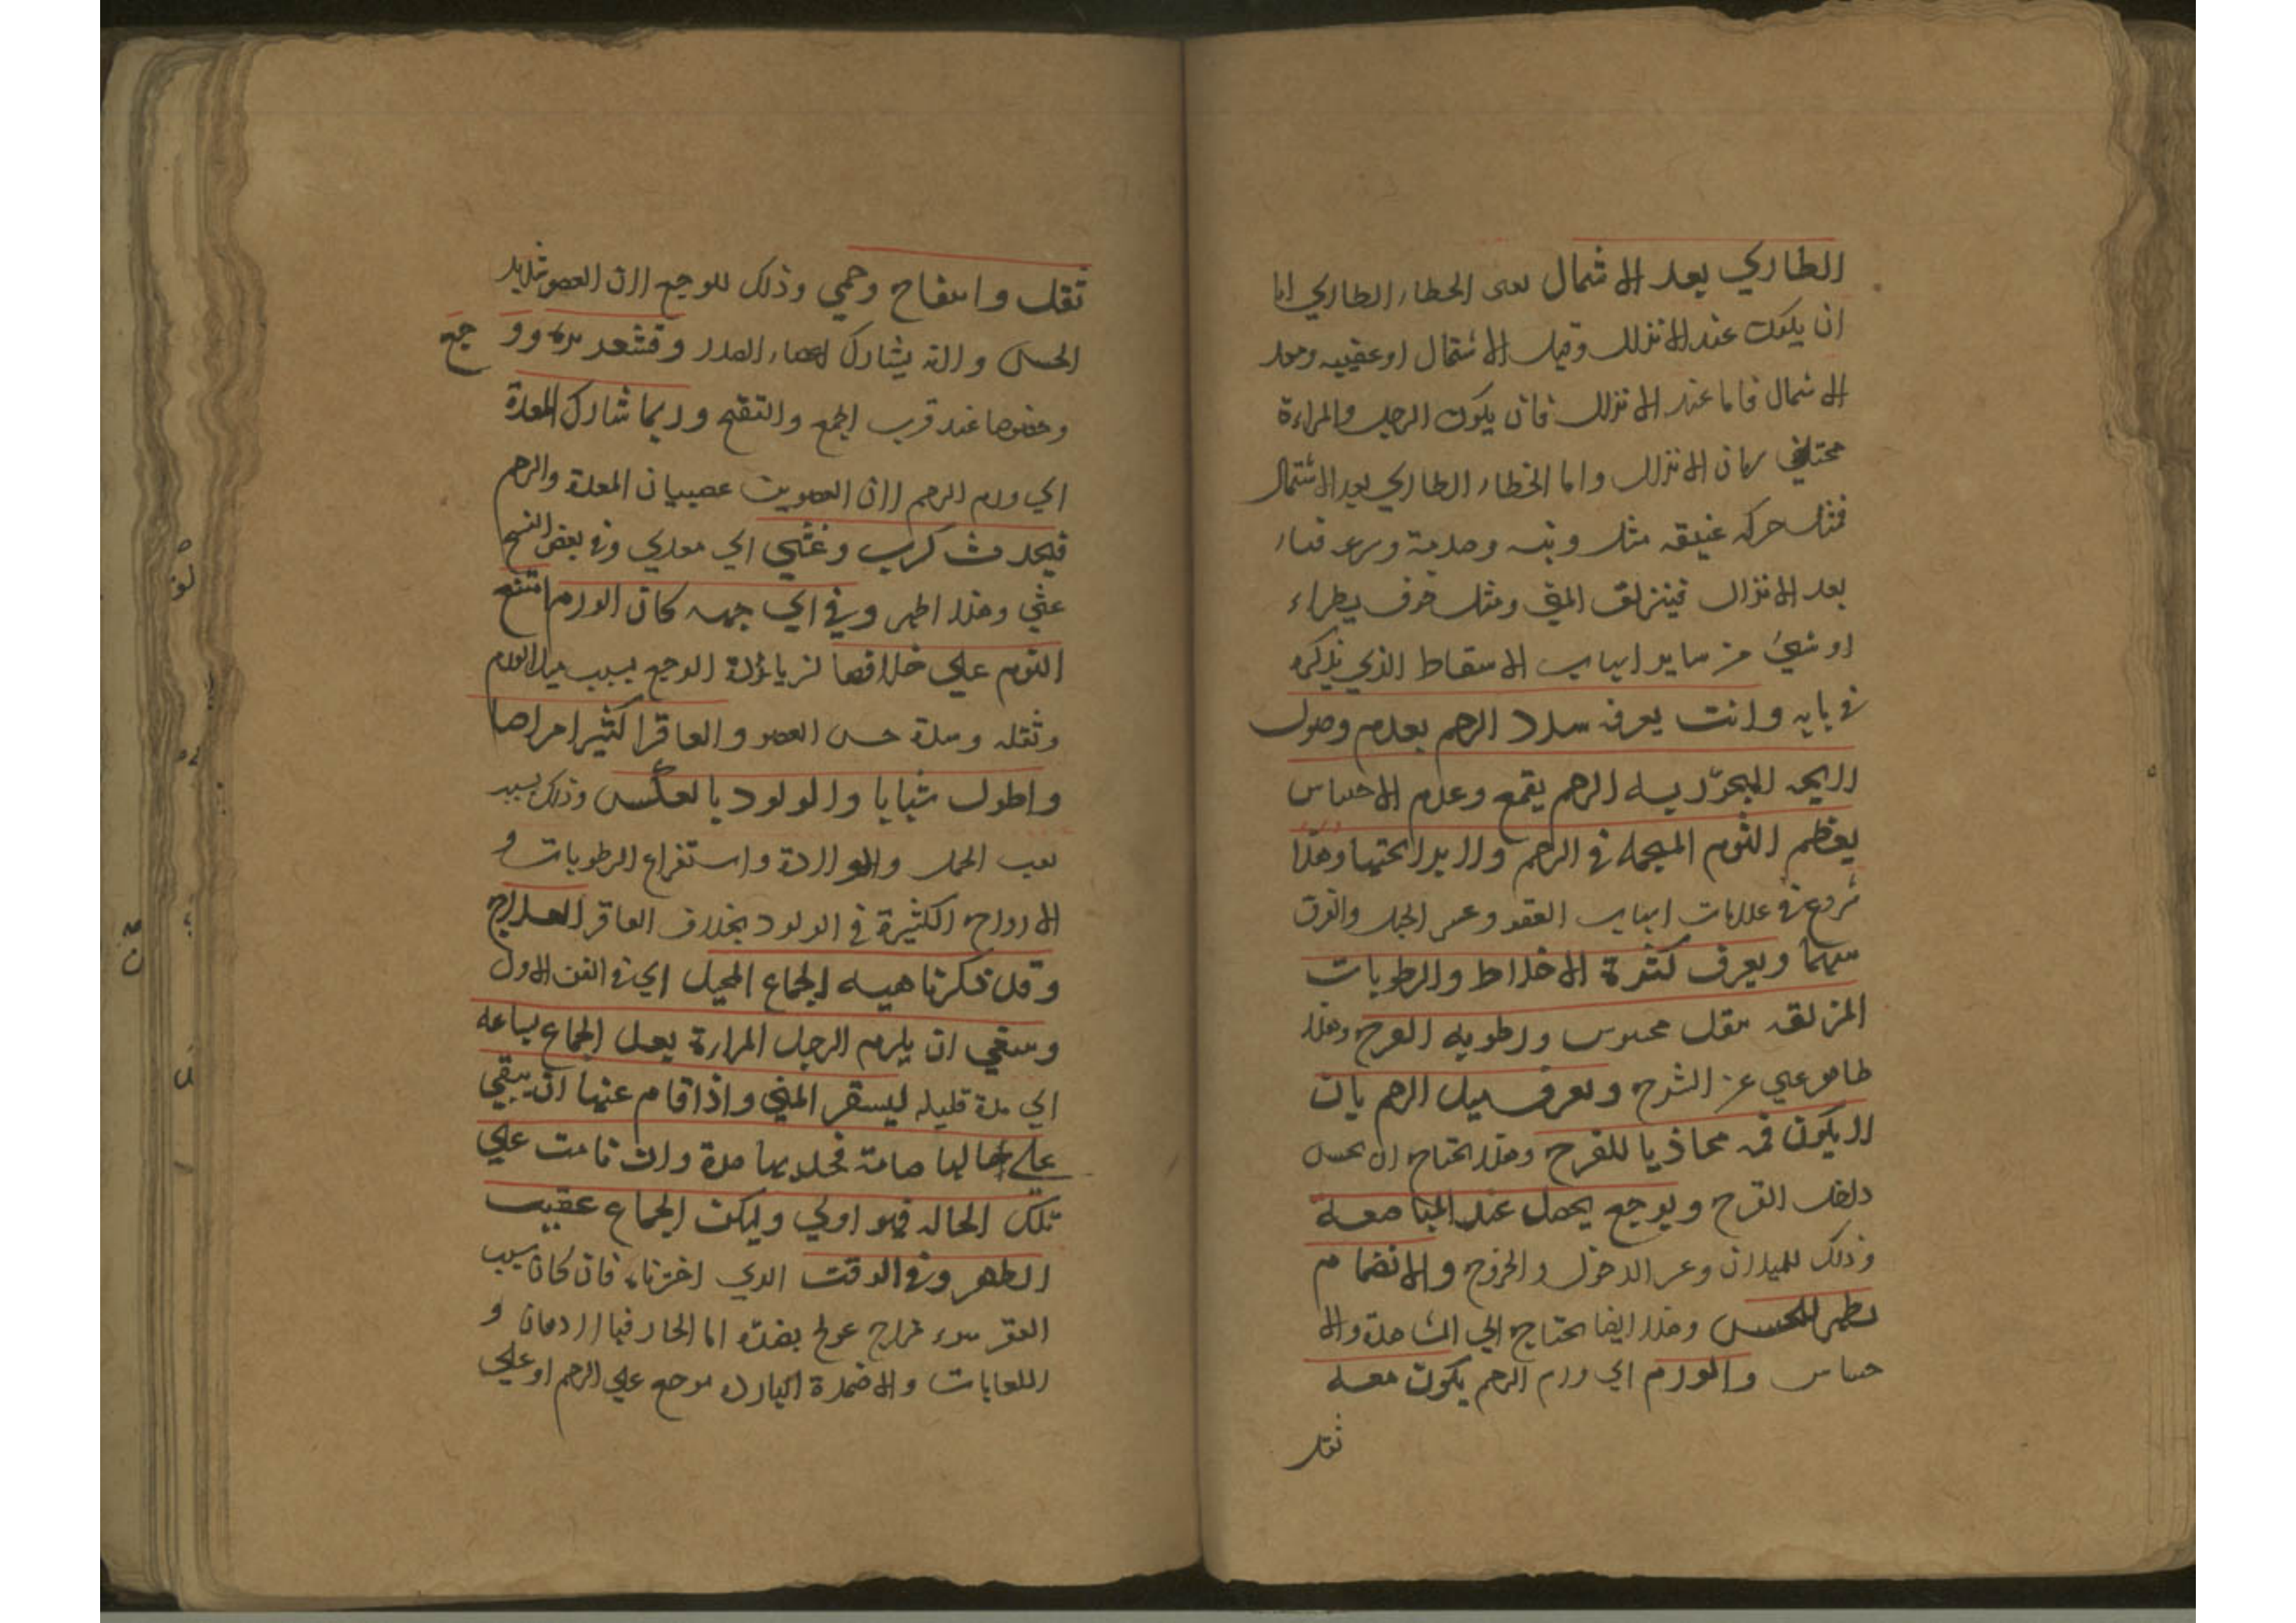 الطاري بعد الاشمال يعني الخطاء الطاري اما
ان يكون عند الانزال وقبل الاشتمال او عقيبه وبعد
الاشمال فاما عند الانزال فان يكون الرجل والمراءة
مختلفي زمان الانزال واما الخطاء الطاري بعد الاشتمال
فمثل حركه عنيفة مثل وثبه وصدمة وسرعه قيام
بعد الانزال فينزلق المني ومثل خوف يطراء
او شيئ من ساير اسباب الاسقاط الذي نذكره
في بابه وانت يعرف سدد الرحم بعدم وصول
رايحه البخور يسه الرحم بقمع وعدم الاحساس
بعظم الثوم المحمله في الرحم ولا بد احتهيا وهذا
شروع في علامات اسباب العقر وعسر الحبل والفرق
بينهما ويعرف كثرة الاخلاط والرطوبات
المزلقه بثقل محسوس ورطوبه الفرج وهذا
ظاهر غني عن الشرح ويعرف ميل الرحم بان
لا يكون فمه محاذيا للفرج وهذا يحتاج ان يحسن
داخل الفرج وبوجع يحصل عند المباضعة
وذلك للميلان وعسر الدخول والخروج والانضمام
يظهر للحسن وهذا ايضا يحتاج الي المشاهدة والا
حساس والمورم اي ورم الرحم يكون معه
ثقل
ثقل وانتفاخ وحمي وذلك للوجع لان العضو شديد
الحسن ولانه يشارك اعضاء الصدر وقشعريره ووجع
وخصوصا عند قرب الجمع والتقيح وربما شارك المعدة
اي ورم الرحم لان العضوين عصبيان المعدة والرحم
فيحدث كرب وغثي اي معدي وفي بعض النسخ
غشي وهذا اظهر وفي اي جهه كان الورم امتنع
النوم علي خلافها لزيادة الوجع بسبب ميل الورم
وثقله وشدة حسن العضو والعاقر اكثير امراضا
واطول شبابا والولود بالعكس وذلك بسبب
تعب الحمل والولادة واستفراغ الرطوبات و
الارواح الكثيرة في الولود بخلاف العاقر العلاج
وقد ذكرنا هييه الجماع المحبل اي في الفن الاول
وينبغي ان يلزم الرجل المراءة بعد الجماع ساعه
اي مدة قليله ليستقر المني واذا قام عنها ان يبقي
علي حالها ضامة فخذيها مدة وان نامت علي
تلك الحاله فهو اولي وليكن الجماع عقيب
الطهر وفي الوقت الذي اخترناه فان كان سبب
العقر سوء مزاج عولج بضده اما الحار فبالادهان و
اللعابات والاضمدة الباردة توضع علي الرحم او علي